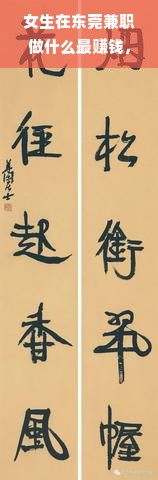 女生在东莞兼职
做什么最赚钱，
烟松銜翠幄
花径起香風